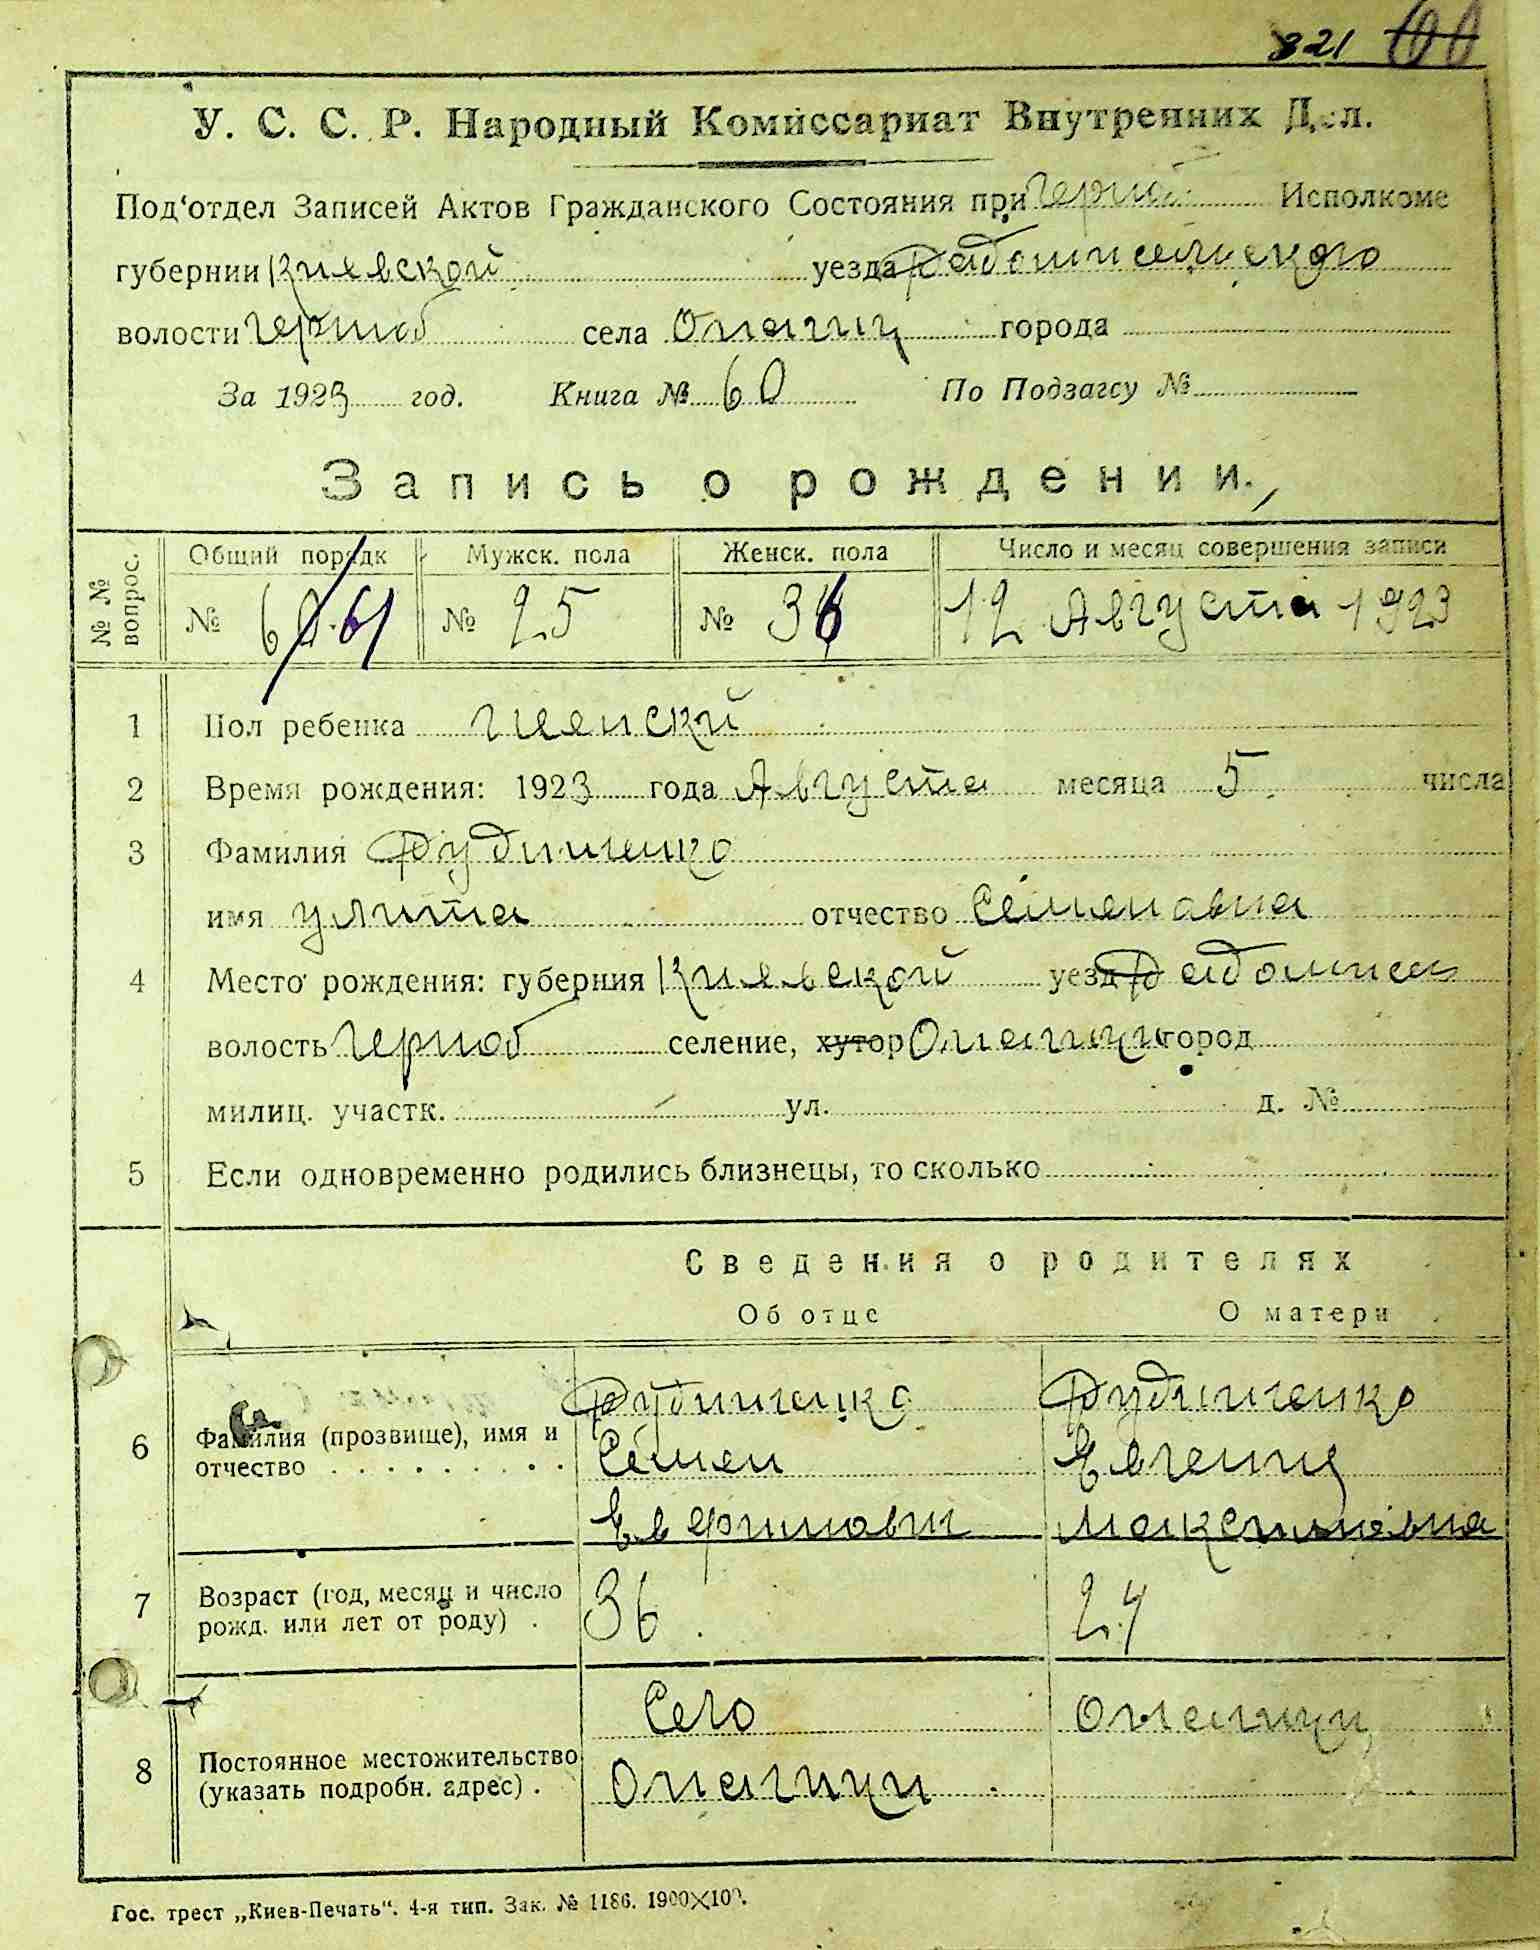 321 100
У. С. С. Р. Народный Комиссариат Внутренних Дел.
Под'отдел Записей Актов Гражданского Состояния при Черноб Исполкоме
губернии Киевской уезда Радомисельского
волости Черноб села Опачиц города
За 1923 год. Книга № 60 По Подзагсу №
Запись о рождении.
№ № вопрос. Общий порядк Мужск. пола Женск. пола Число и месяц совершения записи
№ 60 61 № 25 № 36 12 Августа 1923
1 Пол ребенка женский
2 Время рождения: 1923 года Августа месяца 5 числа
3 Фамилия Рудниченко
имя Улита отчество Семенавна
4 Место рождения: губерния Киевской уезд Радомисл
волость Черноб селение, хутор Опачичи город
милиц. участк. ул. д. №
5 Если одновременно родились близнецы, то сколько
Сведения о родителях
Об отце О матери
Рудниченко Рудниченко
6 Фамилия (прозвище), имя и Семен Евгения
отчество
Максимовна
7 Возраст (год, месяц и число 36 24
рожд. или лет от роду)
Село Опачичи
8 Постоянное местожительство
(указать подробн. адрес) Опачичи
Гос. трест „Киев-Печать“. 4-я тип. Зак. № 1186. 1900×100.